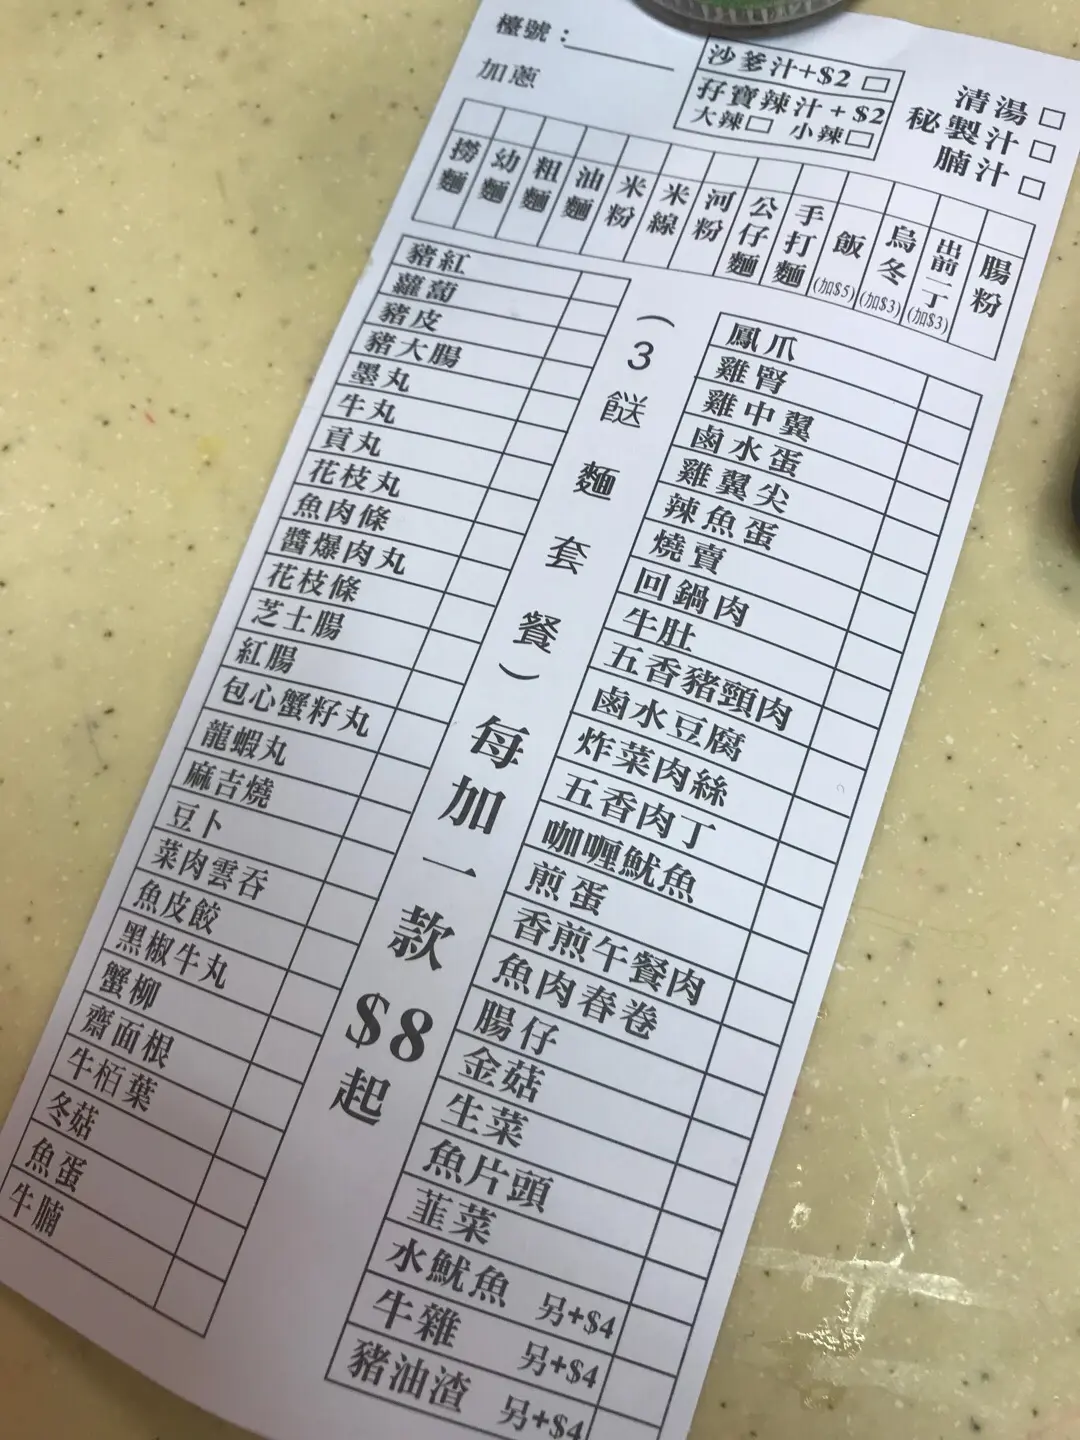 檯號：
加蔥
沙爹汁+$2
孖寶辣汁+$2
大辣 小辣
清湯
秘製汁
腩汁
撈麵
幼麵
粗麵
油麵
米粉
米線
河粉
公仔麵
手打麵
飯(加$5)
烏冬(加$3)
出前一丁(加$3)
腸粉
豬紅
蘿蔔
豬皮
豬大腸
墨丸
牛丸
貢丸
花枝丸
魚肉條
醬爆肉丸
花枝條
芝士腸
紅腸
包心蟹籽丸
龍蝦丸
麻吉燒
豆卜
菜肉雲吞
魚皮餃
黑椒牛丸
蟹柳
齋面根
牛栢葉
冬菇
魚蛋
牛腩
（3餸麵套餐）每加一款$8起
鳳爪
雞腎
雞中翼
鹵水蛋
雞翼尖
辣魚蛋
燒賣
回鍋肉
牛肚
五香豬頸肉
鹵水豆腐
炸菜肉絲
五香肉丁
咖喱魷魚
煎蛋
香煎午餐肉
魚肉春卷
腸仔
金菇
生菜
魚片頭
韮菜
水魷魚 另+$4
牛雜 另+$4
豬油渣 另+$4